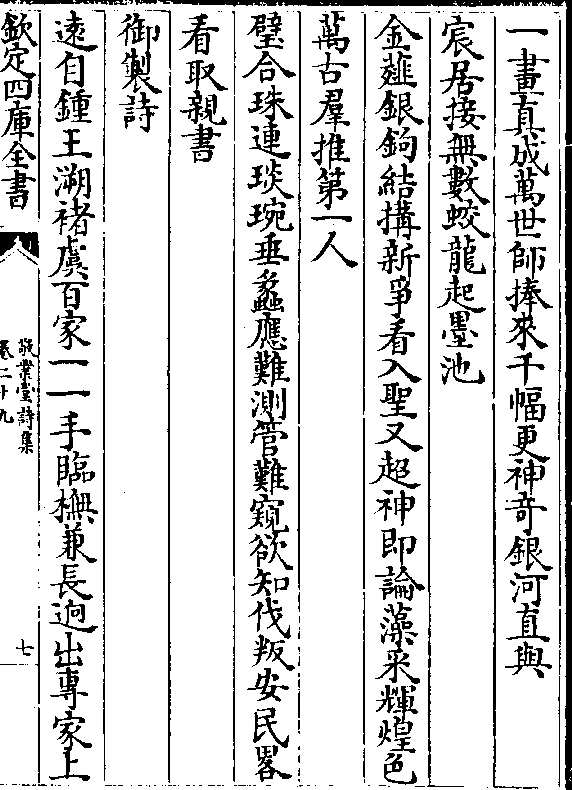 一畫真成萬世師捧來千幅更神奇銀河直與
宸居接無數蛟龍起墨池
金薤銀鉤結搆新爭看入聖又超神即論藻采輝煌色
萬古羣推第一人
璧合珠連琰琬垂蠡應難測管難窺欲知伐叛安民畧
看取親書
御製詩
遠自鍾王溯褚虞百家一一手臨橅兼長逈出專家上
欽定四庫全書
敬業堂詩集
卷二十九
七